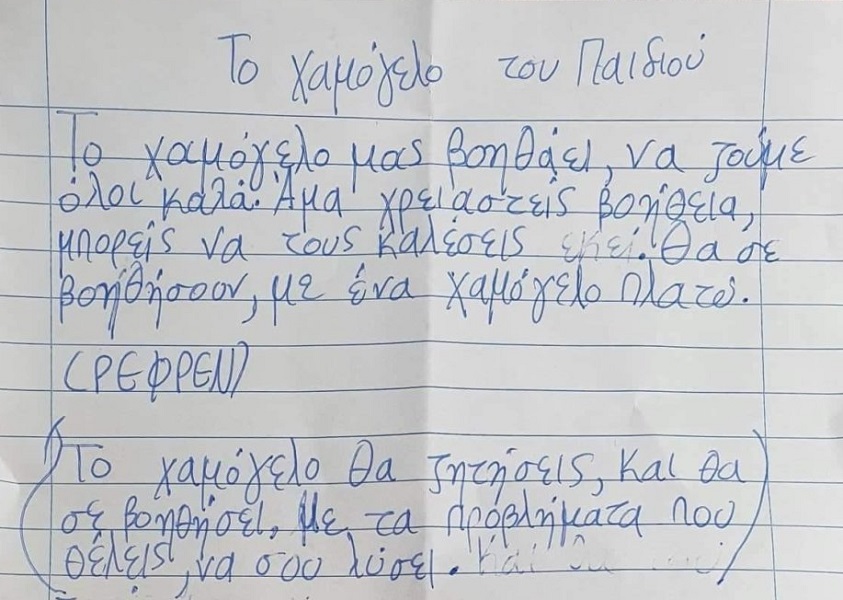 Το χαμόγελο του Παιδιού
Το χαμόγελο μας βοηθάει, να ζούμε
όλοι καλά. Άμα χρειαστείς βοήθεια,
μπορείς να τους καλέσεις εκεί. Θα σε
βοηθήσουν, με ένα χαμόγελο πλατύ.
(ΡΕΦΡΕΝ)
Το χαμόγελο θα ζητήσεις, και θα
σε βοηθήσει. Με τα προβλήματα που
θέλεις, να σου λύσει. Και θα